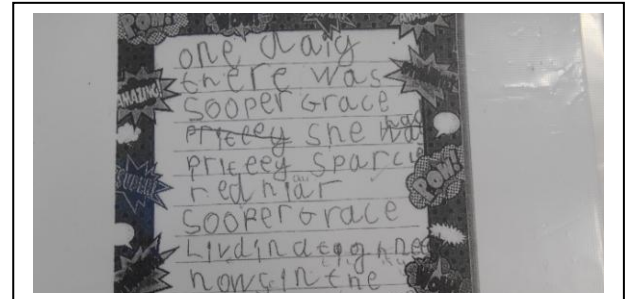 POW!
AMAZING!
one daiy
there was
Sooper Grace
priceey she had
priteey sparcie
red hiar
Sooper Grace
Livdin
howsin the
POW!